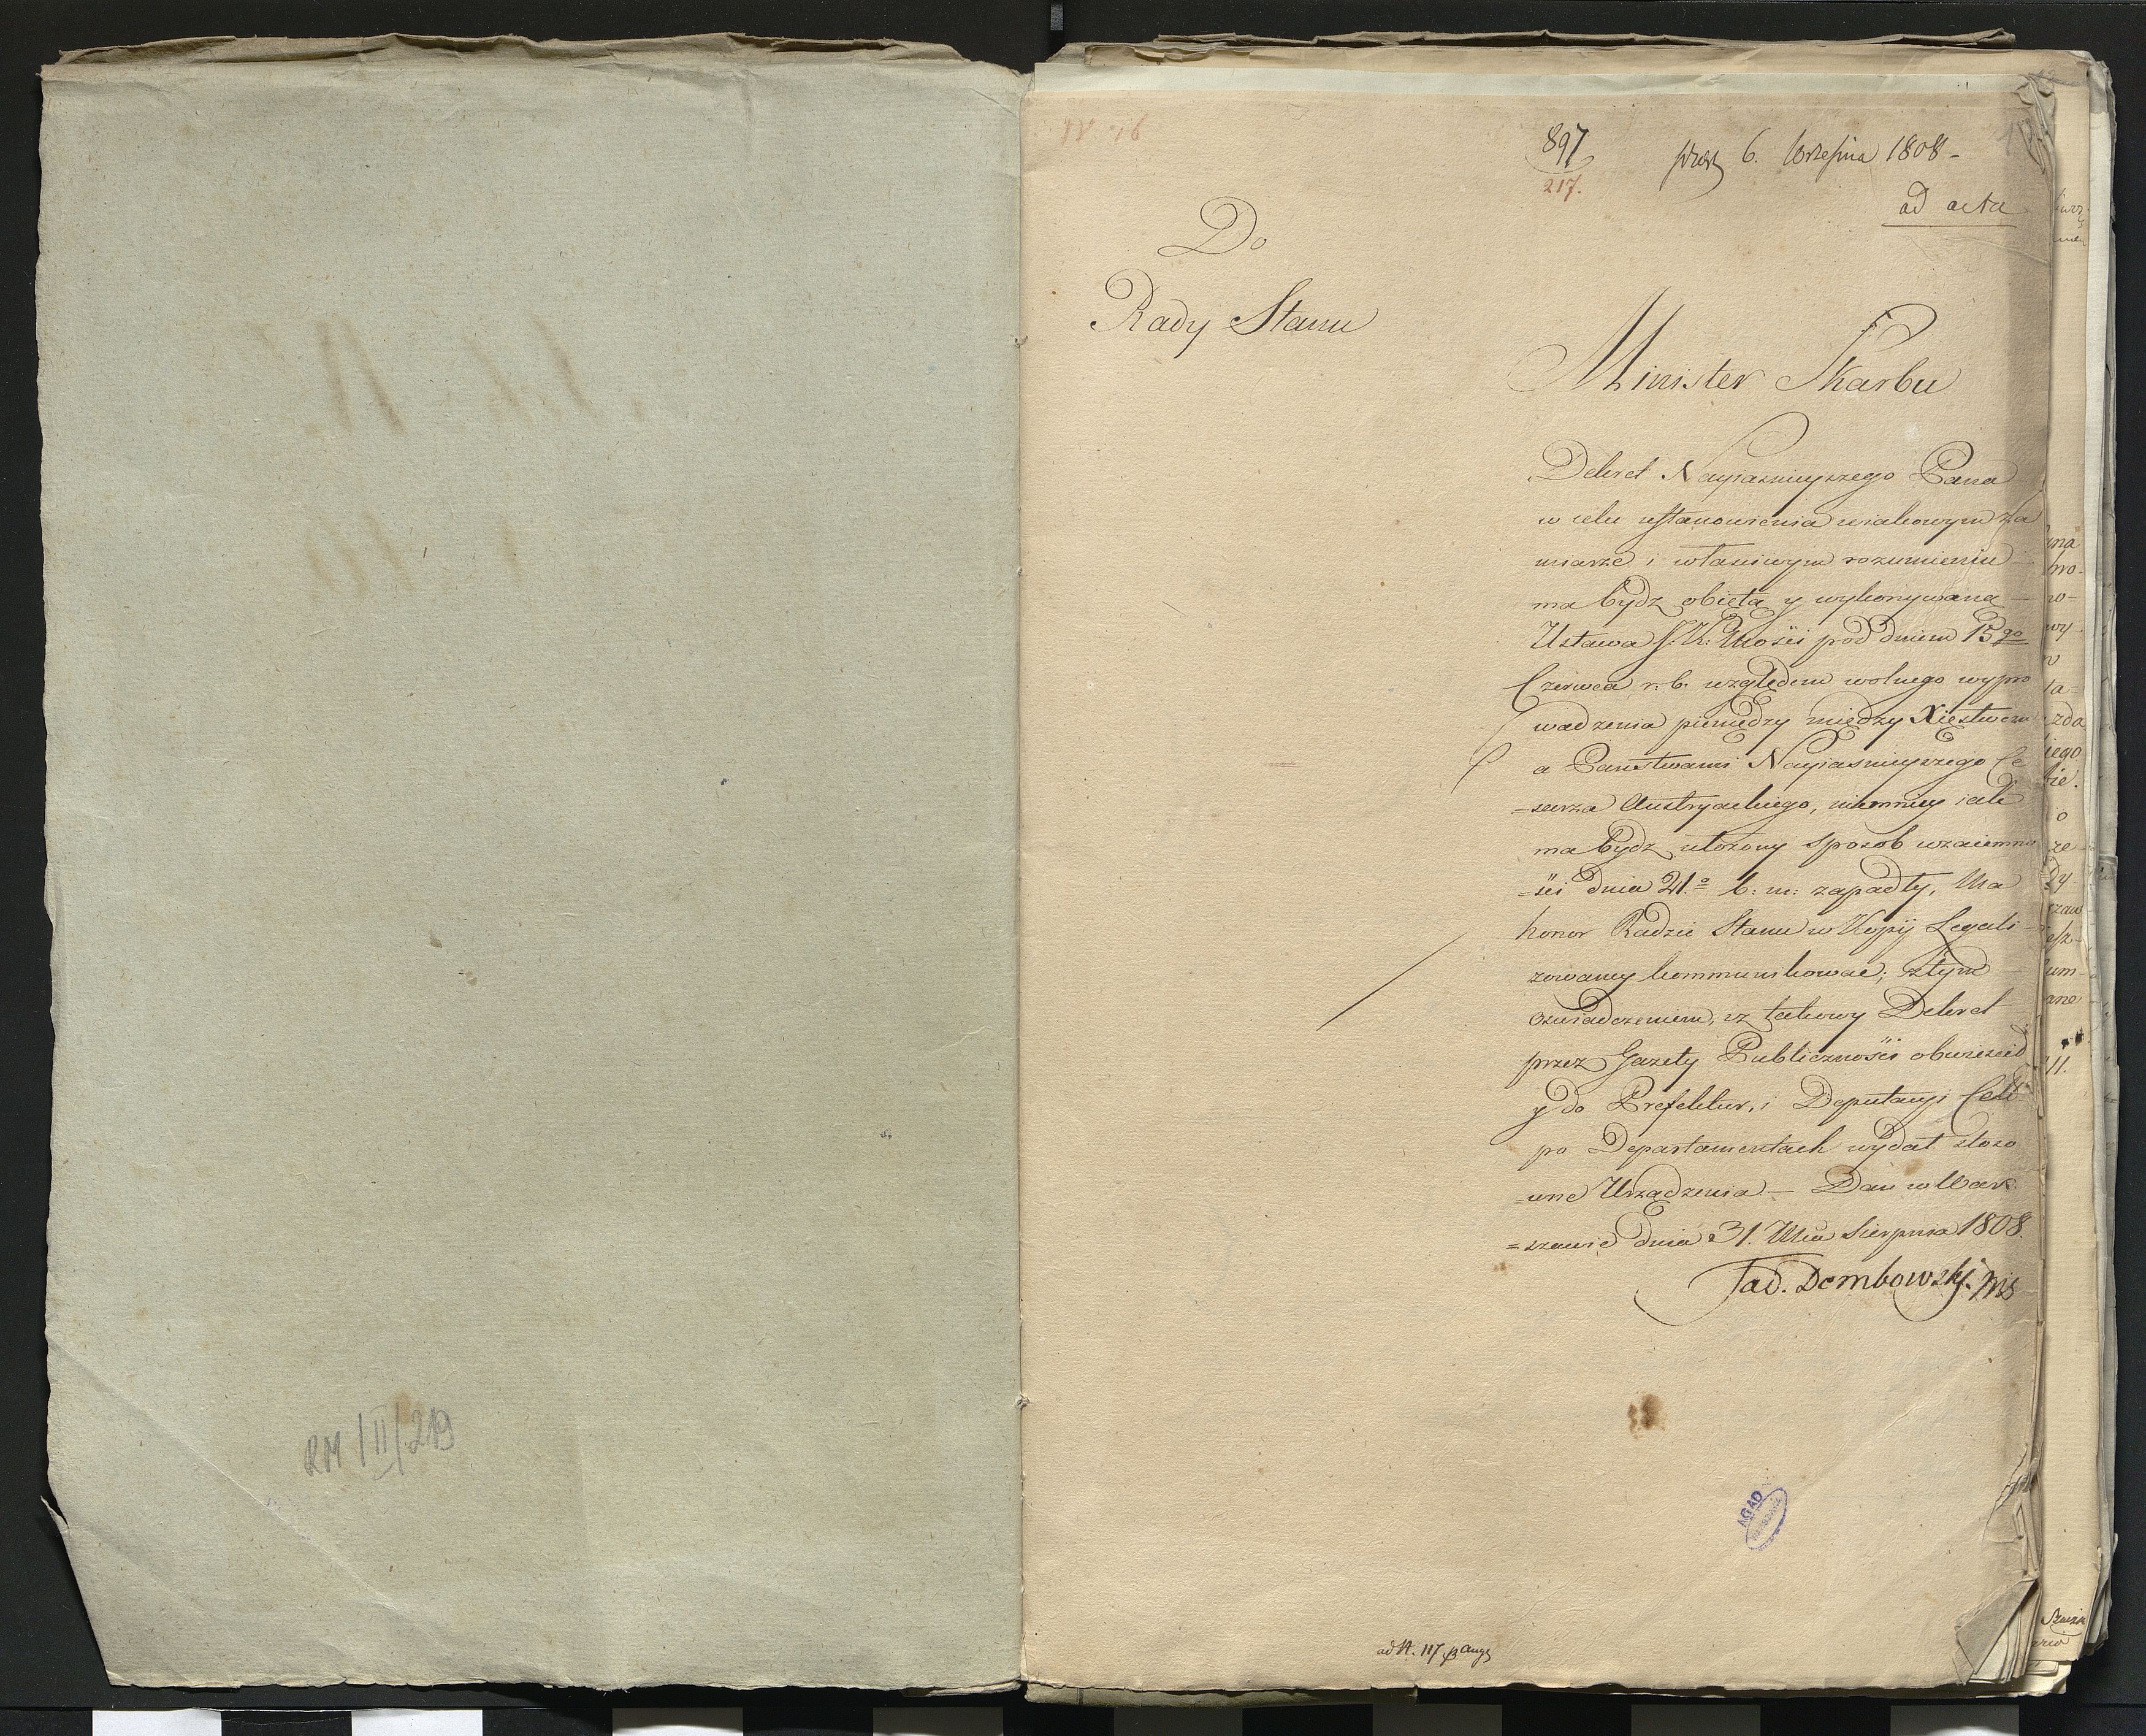 RM/II/219
897
217.
6. Września 1808 -
ad acta
Do
Rady Stanu
Minister Skarbu
Dekret Nayiasnieyszego Pana
w celu ustanowienia w iakowym za
miarze i własciwym rozumieniu
ma bydz obięta y wykonywana
Ustawa J. K. Mości pod dniem 15go
Czerwca r. b. względem wolnego wypro
wadzenia pieniędzy między Xięstwem
a Panstwami Nayiasnieyszego Ce
=sarza Austryackiego, niemniey iak
ma bydz ułożony sposob wzaiemno
=ści dnia 21.º b: m: zapadły, Ma
honor Radzie Stanu w Kopij Legali
zowaney kommunikować; z tym
oswiadczeniem, iż takowy Dekret
przez Gazety Publiczności obwieścił
y do Prefektur, i Deputacyi Cell
po Departamentach wydał stoso
=wne Urządzenia - Dan w War
=szawie dnia 31. Mca Sierpnia 1808.
Tad. Dembowski. Mis
AGAD
ad N. 117 Aug